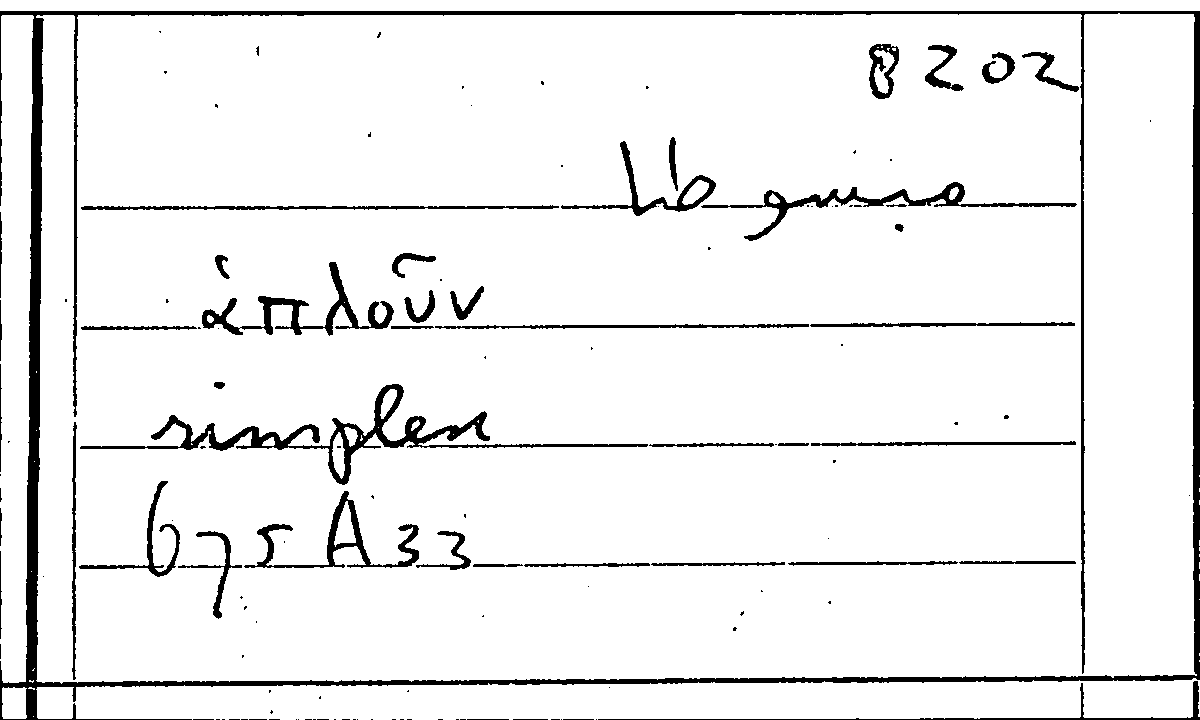 8202
Lib
ἁπλοῦν
simplex
675 A 33